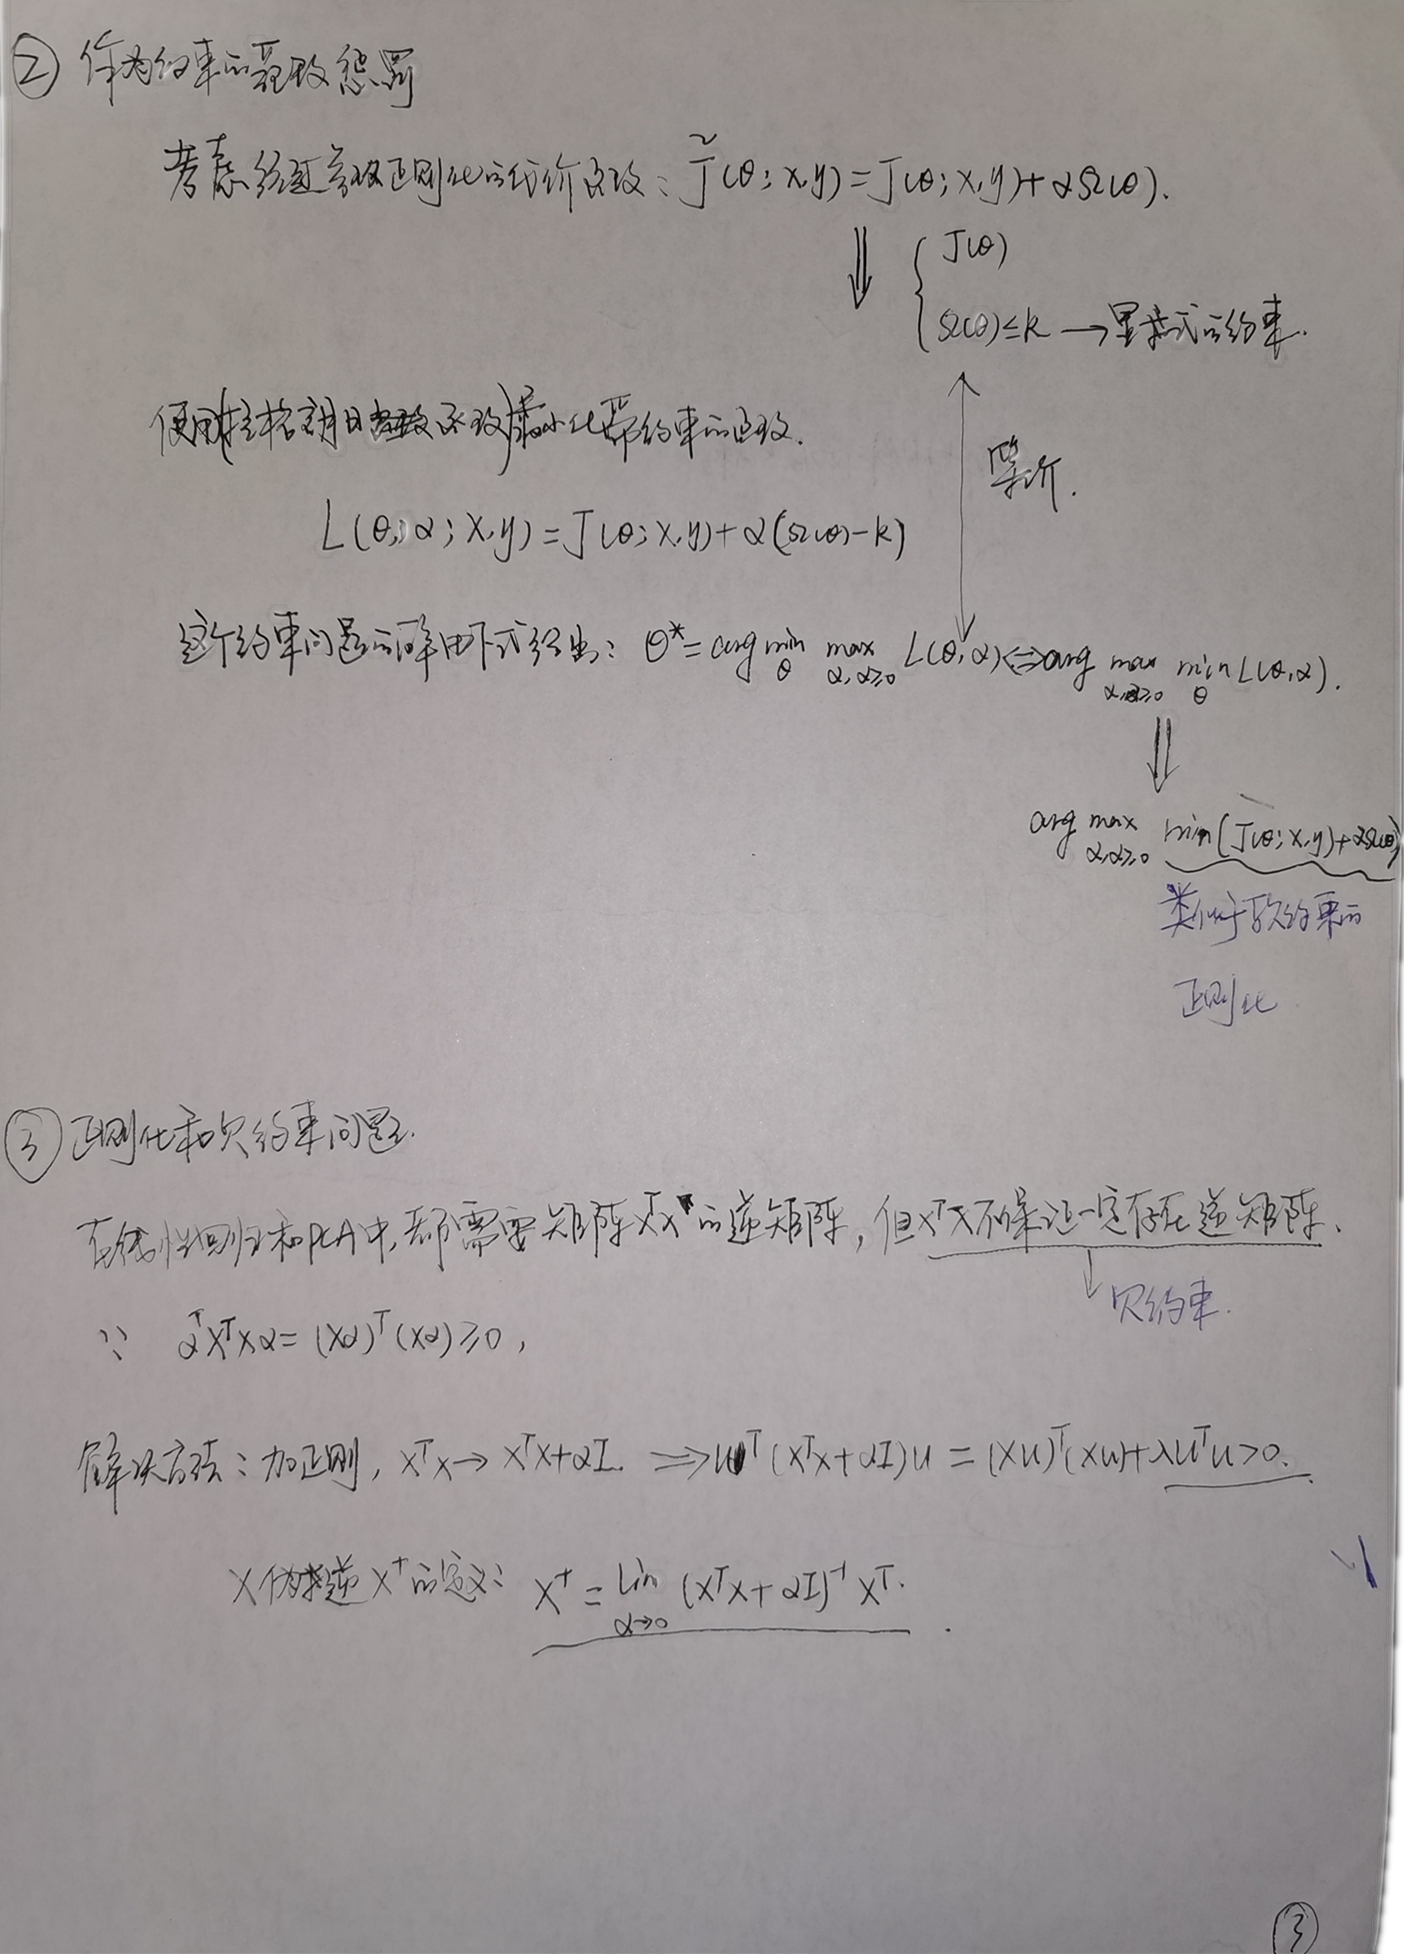 ② 作为约束的范数惩罚
考虑经过参数正则化的代价函数：J̃(θ; X, y) = J(θ; X, y) + αΩ(θ).
⇓ { J(θ)
Ω(θ) ≤ k → 显式的约束.
使用(拉格朗日函数)最小化带约束的函数.
等价.
L(θ, α; X, y) = J(θ; X, y) + α(Ω(θ) - k)
这个约束问题的解由下式给出：θ* = arg min_θ max_{α, α≥0} L(θ, α) ⇔ arg max_{α, α≥0} min_θ L(θ, α).
⇓
arg max_{α, α≥0} min(J(θ; X, y) + αΩ(θ))
类似于软约束的
正则化
③ 正则化和欠约束问题.
在线性回归和PCA中, 都需要矩阵XᵀX的逆矩阵, 但XᵀX不保证一定存在逆矩阵.
↓ 欠约束.
∵ αᵀXᵀXα = (Xα)ᵀ(Xα) ≥ 0,
解决方法：加正则, XᵀX → XᵀX + αI. ⇒ uᵀ(XᵀX + αI)u = (Xu)ᵀ(Xu) + λuᵀu > 0.
X伪逆X⁺的定义：X⁺ = lim_{α→0} (XᵀX + αI)⁻¹Xᵀ.
③